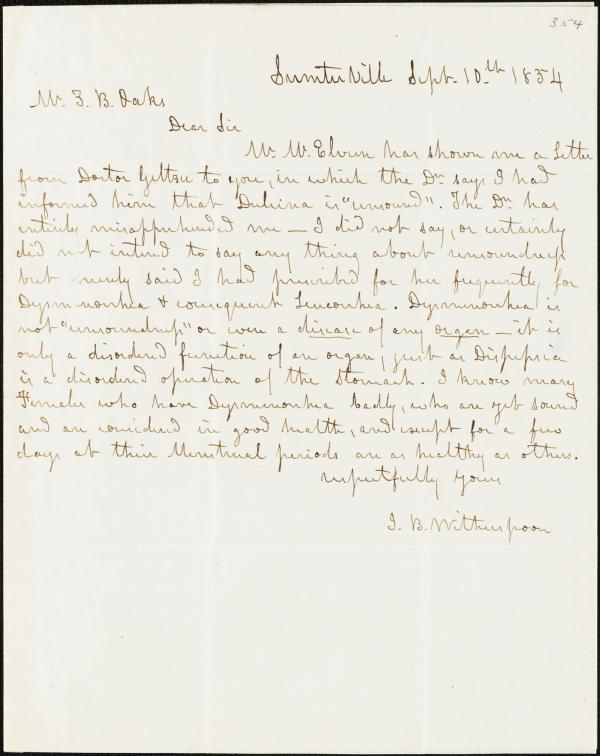 354
Sumterville Sept. 10th 1854
Mr. Z. B. Oaks
Dear Sir
Mr. McElveen has shown me a Letter
from Doctor to you, in which the Dr. says I had
informed him that Delicina is "unsound". The Dr. has
entirely misapprehended me — I did not say, or certainly
did not intend to say any thing about unsoundness
but merely said I had prescribed for her frequently for
Dysmenorrhea & consequent Leucorrhea. Dysmenorrhea is
not "unsoundness" or even a disease of any organ — it is
only a disordered function of an organ, just as Dispepsia
is a disordered operation of the Stomach. I know many
Females who have Dysmenorrhea badly, who are yet sound
and are considered in good health, and except for a few
days at their Menstrual periods are as healthy as others.
respectfully yours
J. B. Witherspoon